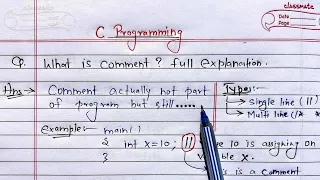 classmate
Date
Page
C Programming
Q. What is comment? full explanation.
Ans Comment actually not part
of program but still......
Types:-
Single line (//)
Multi line (/*
Example:- main()
{ int x=10; // 10 is assigning on
variable x.
}
is a comment